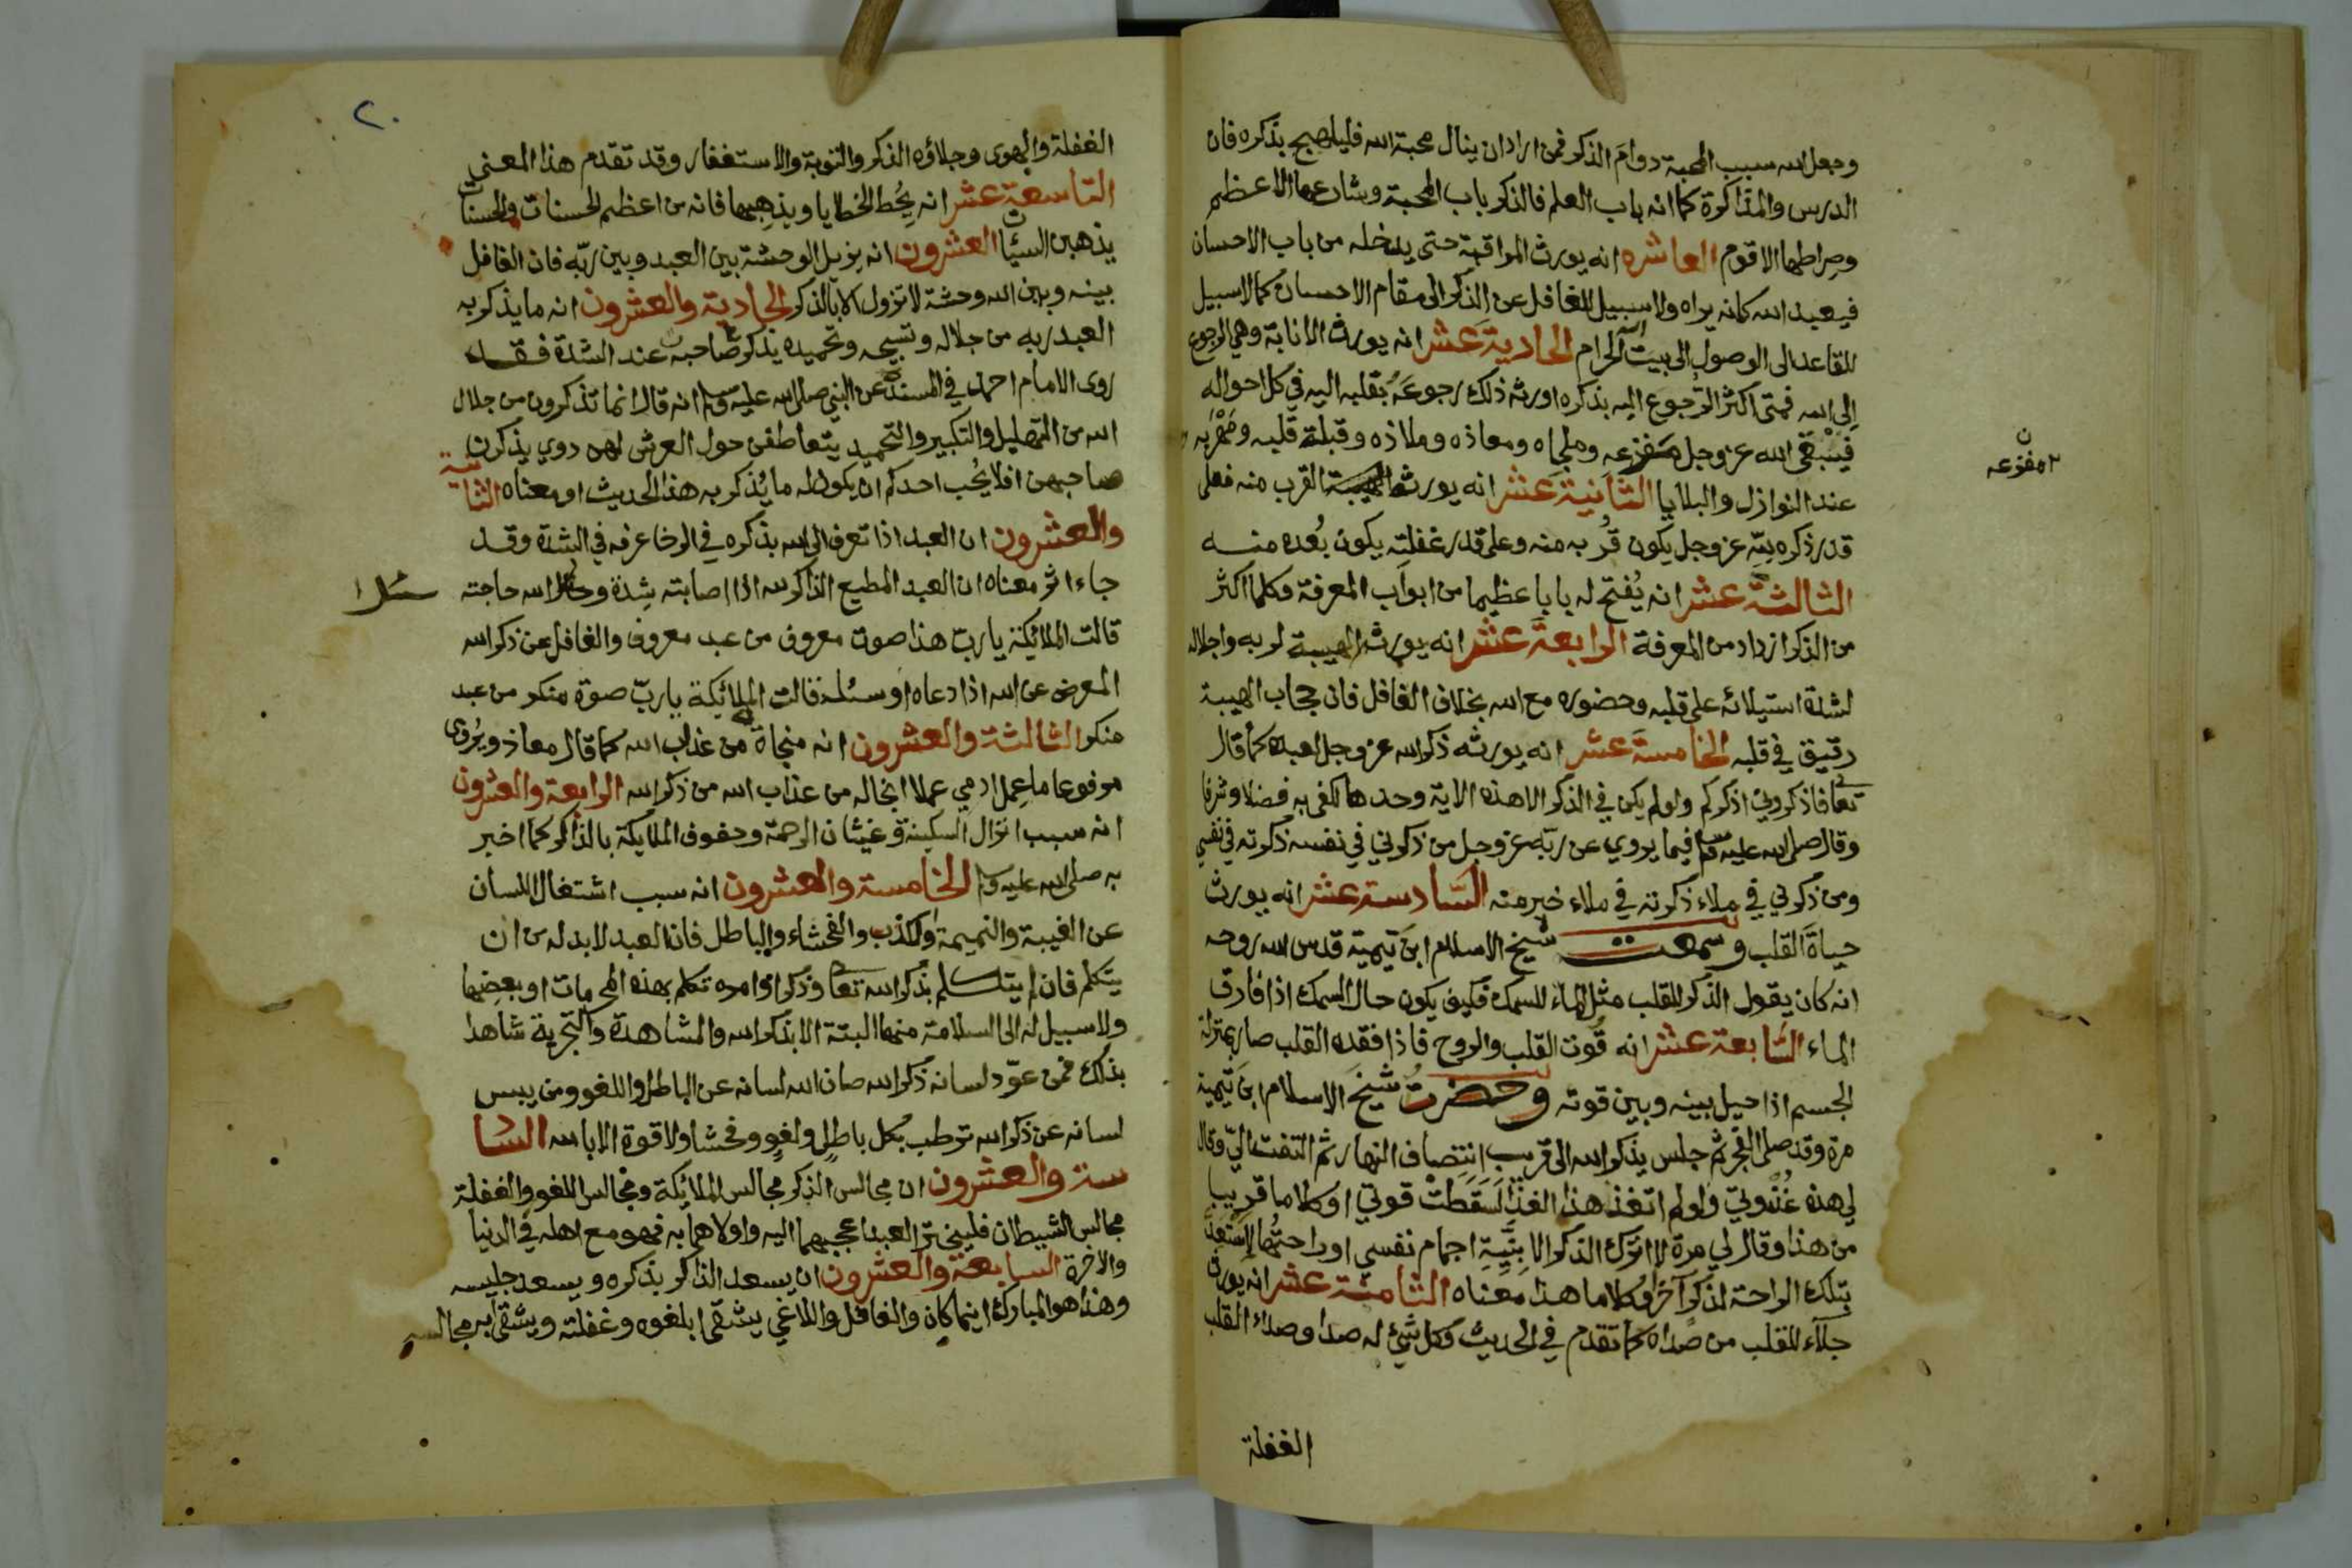 وجعل الله سبب المحبة دوامَ الذكر فمن اراد ان ينال محبة الله فليلهج بذكره فان
الدرس والمذاكرة كما انه باب العلم فالذكر باب المحبة وشارعها الاعظم
وصراطها الاقوم العاشره انه يورث المراقبة حتى يدخله من باب الاحسان
فيعبد الله كانه يراه ولا سبيل للغافل عن الذكر الى مقام الاحسان كما لا سبيل
للقاعد الى الوصول الى بيت الله الحرام الحادية عشر انه يورث الانابة وهي الرجوع
الى الله فمتى اكثر الرجوع اليه بذكره اورثه ذلك رجوعَهُ بقلبه اليه في كل احواله
فيبقى الله عز وجل مفزعه وملجاه ومعاذه وملاذه وقبلة قلبه ومَهْرَبه
٢ مفزعه
ن
عند النوازل والبلايا الثانية عشر انه يورث القرب منه فعلى
قدر ذكره عز وجل يكون قُربه منه وعلى قدر غفلته يكون بُعده منه
الثالثة عشر انه يُفتح له بابا عظيما من ابواب المعرفة وكلما اكثر
من الذكر ازداد من المعرفة الرابعة عشر انه يورثه الهيبة لربه واجلاله
لشدة استيلائه على قلبه وحضوره مع الله بخلاف الغافل فان حجاب الهيبة
رقيق في قلبه الخامسة عشر انه يورثه ذكر الله عز وجل لعبده كما قال
تعا فاذكروني اذكركم ولو لم يكن في الذكر الا هذه الاية وحدها لكفى به فضلا وشرفا
وقال صلى الله عليه وسلم فيما يروي عن ربّه عز وجل من ذكرني في نفسه ذكرته في نفسي
ومن ذكرني في ملاء ذكرته في ملاء خير منه السّادسة عشر انه يورث
حياةَ القلب وسمعت شيخ الاسلام ابن تيمية قدس الله روحه
انه كان يقول الذكر للقلب مثل الماء للسمك فكيف يكون حال السمك اذا فارق
الماء السّابعة عشر انه قُوت القلب والروح فاذا فقده القلب صار بمنزلة
الجسم اذا حيل بينه وبين قوته وحضرتُ شيخَ الاسلام ابن تيمية
مرة وقد صلى الفجر ثم جلس يذكر الله الى قريب انتِصاف النهار ثم التفت اليّ وقال
لي هذه غُدْوتي ولو لم اتغذ هذا الغذا لَسَقَطَتْ قوتي او كلاما قريبا
من هذا وقال لي مرة لا اترك الذكر الا بِنِيَّةِ اجمام نفسي او راحتها لاسْتَعِدَّ
بتلك الراحة لذكر آخر او كلاما هذا معناه الثامنة عشر انه يورث
جلاء للقلب من صداه كما تقدم في الحديث وكل شيئ له صدا وصداء القلب
الغفلة
٢٠
الغفلة والهوى وجلاؤه الذكر والتوبة والاستغفار وقد تقدم هذا المعنى
التاسعة عشر انه يحُط الخطايا ويذهبها فانه من اعظم الحسنات والحسنات
يذهبن السيئات العشرون انه يزيل الوحشة بين العبد وبين ربّه فان الغافل
بينه وبين الله وحشة لا تزول الا بالذكر الحادية والعشرون انه ما يذكر به
العبد ربه من جلاله وتسبيحه وتحميده يذكر صاحبه عند الشدة فقد
روى الامام احمد في المسند عن النبي صلى الله عليه وسلم انه قال انما تذكرون من جلال
الله من التهليل والتكبير والتحميد يتعاطفن حول العرش لهن دوي يذكرن
صاحبهن افلا يحُب احدكم ان يكون له ما يُذكر به هذا الحديث او معناه الثانية
والعشرون ان العبد اذا تعرف الى الله بذكره في الرخا عرفه في الشدة وقد
جاء اثر معناه ان العبد المطيع الذاكر لله اذا اصابته شِدة وسال الله حاجته
قالت الملائيكة يا ربّ هذا صوت معروف من عبد معروف والغافل عن ذكر الله
المعرض عن الله اذا دعاه او سئله قالت الملائيكة يا ربّ صوة منكر من عبد
منكر الثالثة والعشرون انه منجاة من عذاب الله كما قال معاذ ويُروى
مرفوعا ما عمل ادمي عملا انجا له من عذاب الله من ذكر الله الرابعة والعشرون
انه سبب انزال السكينة وغيثان الرحمة وحفوف الملايكة بالذاكر كما اخبر
به صلى الله عليه وسلم الخامسة والعشرون انه سبب اشتغال اللسان
عن الغيبة والنميمة والكذب والفحشاء والباطل فان العبد لا بد له من ان
يتكلم فان لم يتكلم بذكر الله تعا وذكر اوامره تكلم بهذه المحرمات او بعضها
ولا سبيل له الى السلامة منها البتة الا بذكر الله والمشاهدة والتجربة شاهدا
بذلك فمن عوّد لسانه ذكر الله صان الله لسانه عن الباطل واللغو ومن يبس
لسانه عن ذكر الله ترطب بكل باطل ولغو وفحشا ولا قوة الا بالله السا
سة والعشرون ان مجالس الذكر مجالس الملائيكة ومجالس اللغو والغفلة
مجالس الشيطان فليتخير العبد اعجبهما اليه واولاهما به فهو مع اهله في الدنيا
والاخرة السابعة والعشرون ان يسعد الذاكر بذكره ويسعد جليسه
وهذا هو المبارك اينما كان والغافل واللاغي يشقى بلغوه وغفلته ويشقى به مجالسه